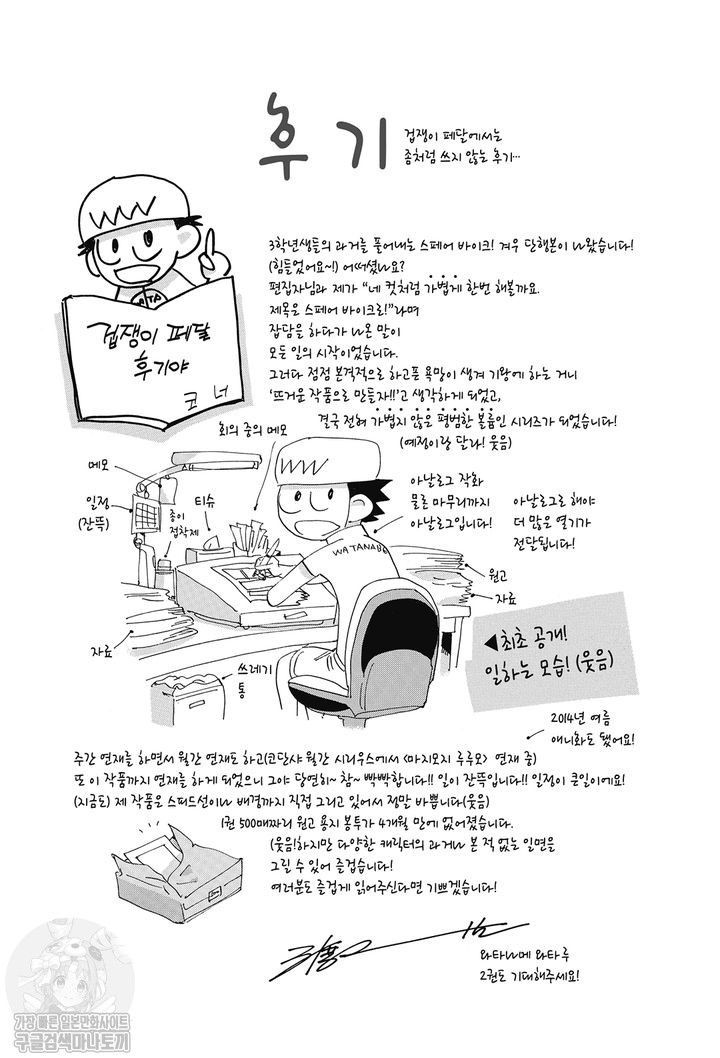 후기
겁쟁이 페달에서는
좀처럼 쓰지 않는 후기…
WATA
겁쟁이 페달
후기야
코너
3학년생들의 과거를 풀어내는 스페어 바이크! 겨우 단행본이 나왔습니다!
(힘들었어요~!) 어떠셨나요?
편집자님과 제가 “네 컷처럼 가볍게 한번 해볼까요.
제목은 스페어 바이크로!”라며
잡담을 하다가 나온 말이
모든 일의 시작이었습니다.
그러다 점점 본격적으로 하고픈 욕망이 생겨 기왕에 하는 거니
‘뜨거운 작품으로 만들자!!’고 생각하게 되었고,
결국 전혀 가볍지 않은 평범한 볼륨인 시리즈가 되었습니다!
(예정이랑 달라! 웃음)
회의 중의 메모
메모
일정
(잔뜩)
종이
접착제
티슈
WW
아날로그 작화
물론 마무리까지
아날로그입니다!
아날로그로 해야
더 많은 열기가
전달됩니다!
WATANABE
원고
자료
자료
쓰레기
통
◀최초 공개!
일하는 모습! (웃음)
2014년 여름
애니화도 됐어요!
주간 연재를 하면서 월간 연재도 하고(코단샤 월간 시리우스에서 <마지모지 루루모> 연재 중)
또 이 작품까지 연재를 하게 되었으니 그야 당연히~ 참~ 빡빡합니다!! 일이 잔뜩입니다!! 일정이 큰일이에요!
(지금도) 제 작품은 스피드선이나 배경까지 직접 그리고 있어서 정말 바쁩니다(웃음)
1권 500매짜리 원고 용지 봉투가 4개월 만에 없어졌습니다.
(웃음)하지만 다양한 캐릭터의 과거나 본 적 없는 일면을
그릴 수 있어 즐겁습니다!
여러분도 즐겁게 읽어주신다면 기쁘겠습니다!
와타나베 와타루
2권도 기대해주세요!
가장 빠른 일본만화사이트
구글검색마나토끼